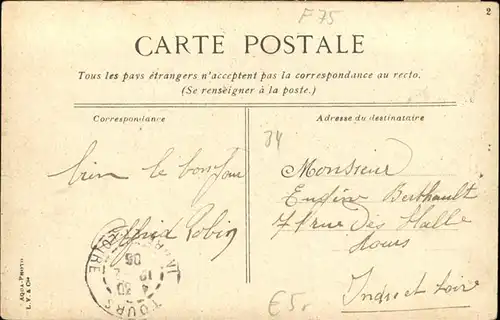 F 75
2
CARTE POSTALE
Tous les pays étrangers n'acceptent pas la correspondance au recto.
(Se renseigner à la poste.)
Correspondance
Adresse du destinataire
34
bien le bonjour
Robin
Monsieur
Eugène Berthault
rue des Halle
Tours
Indre et Loire
TOURS
INDRE ET LOIRE
4 30
19
06
€5.
AQUA-PHOTO
L.V. & Cie